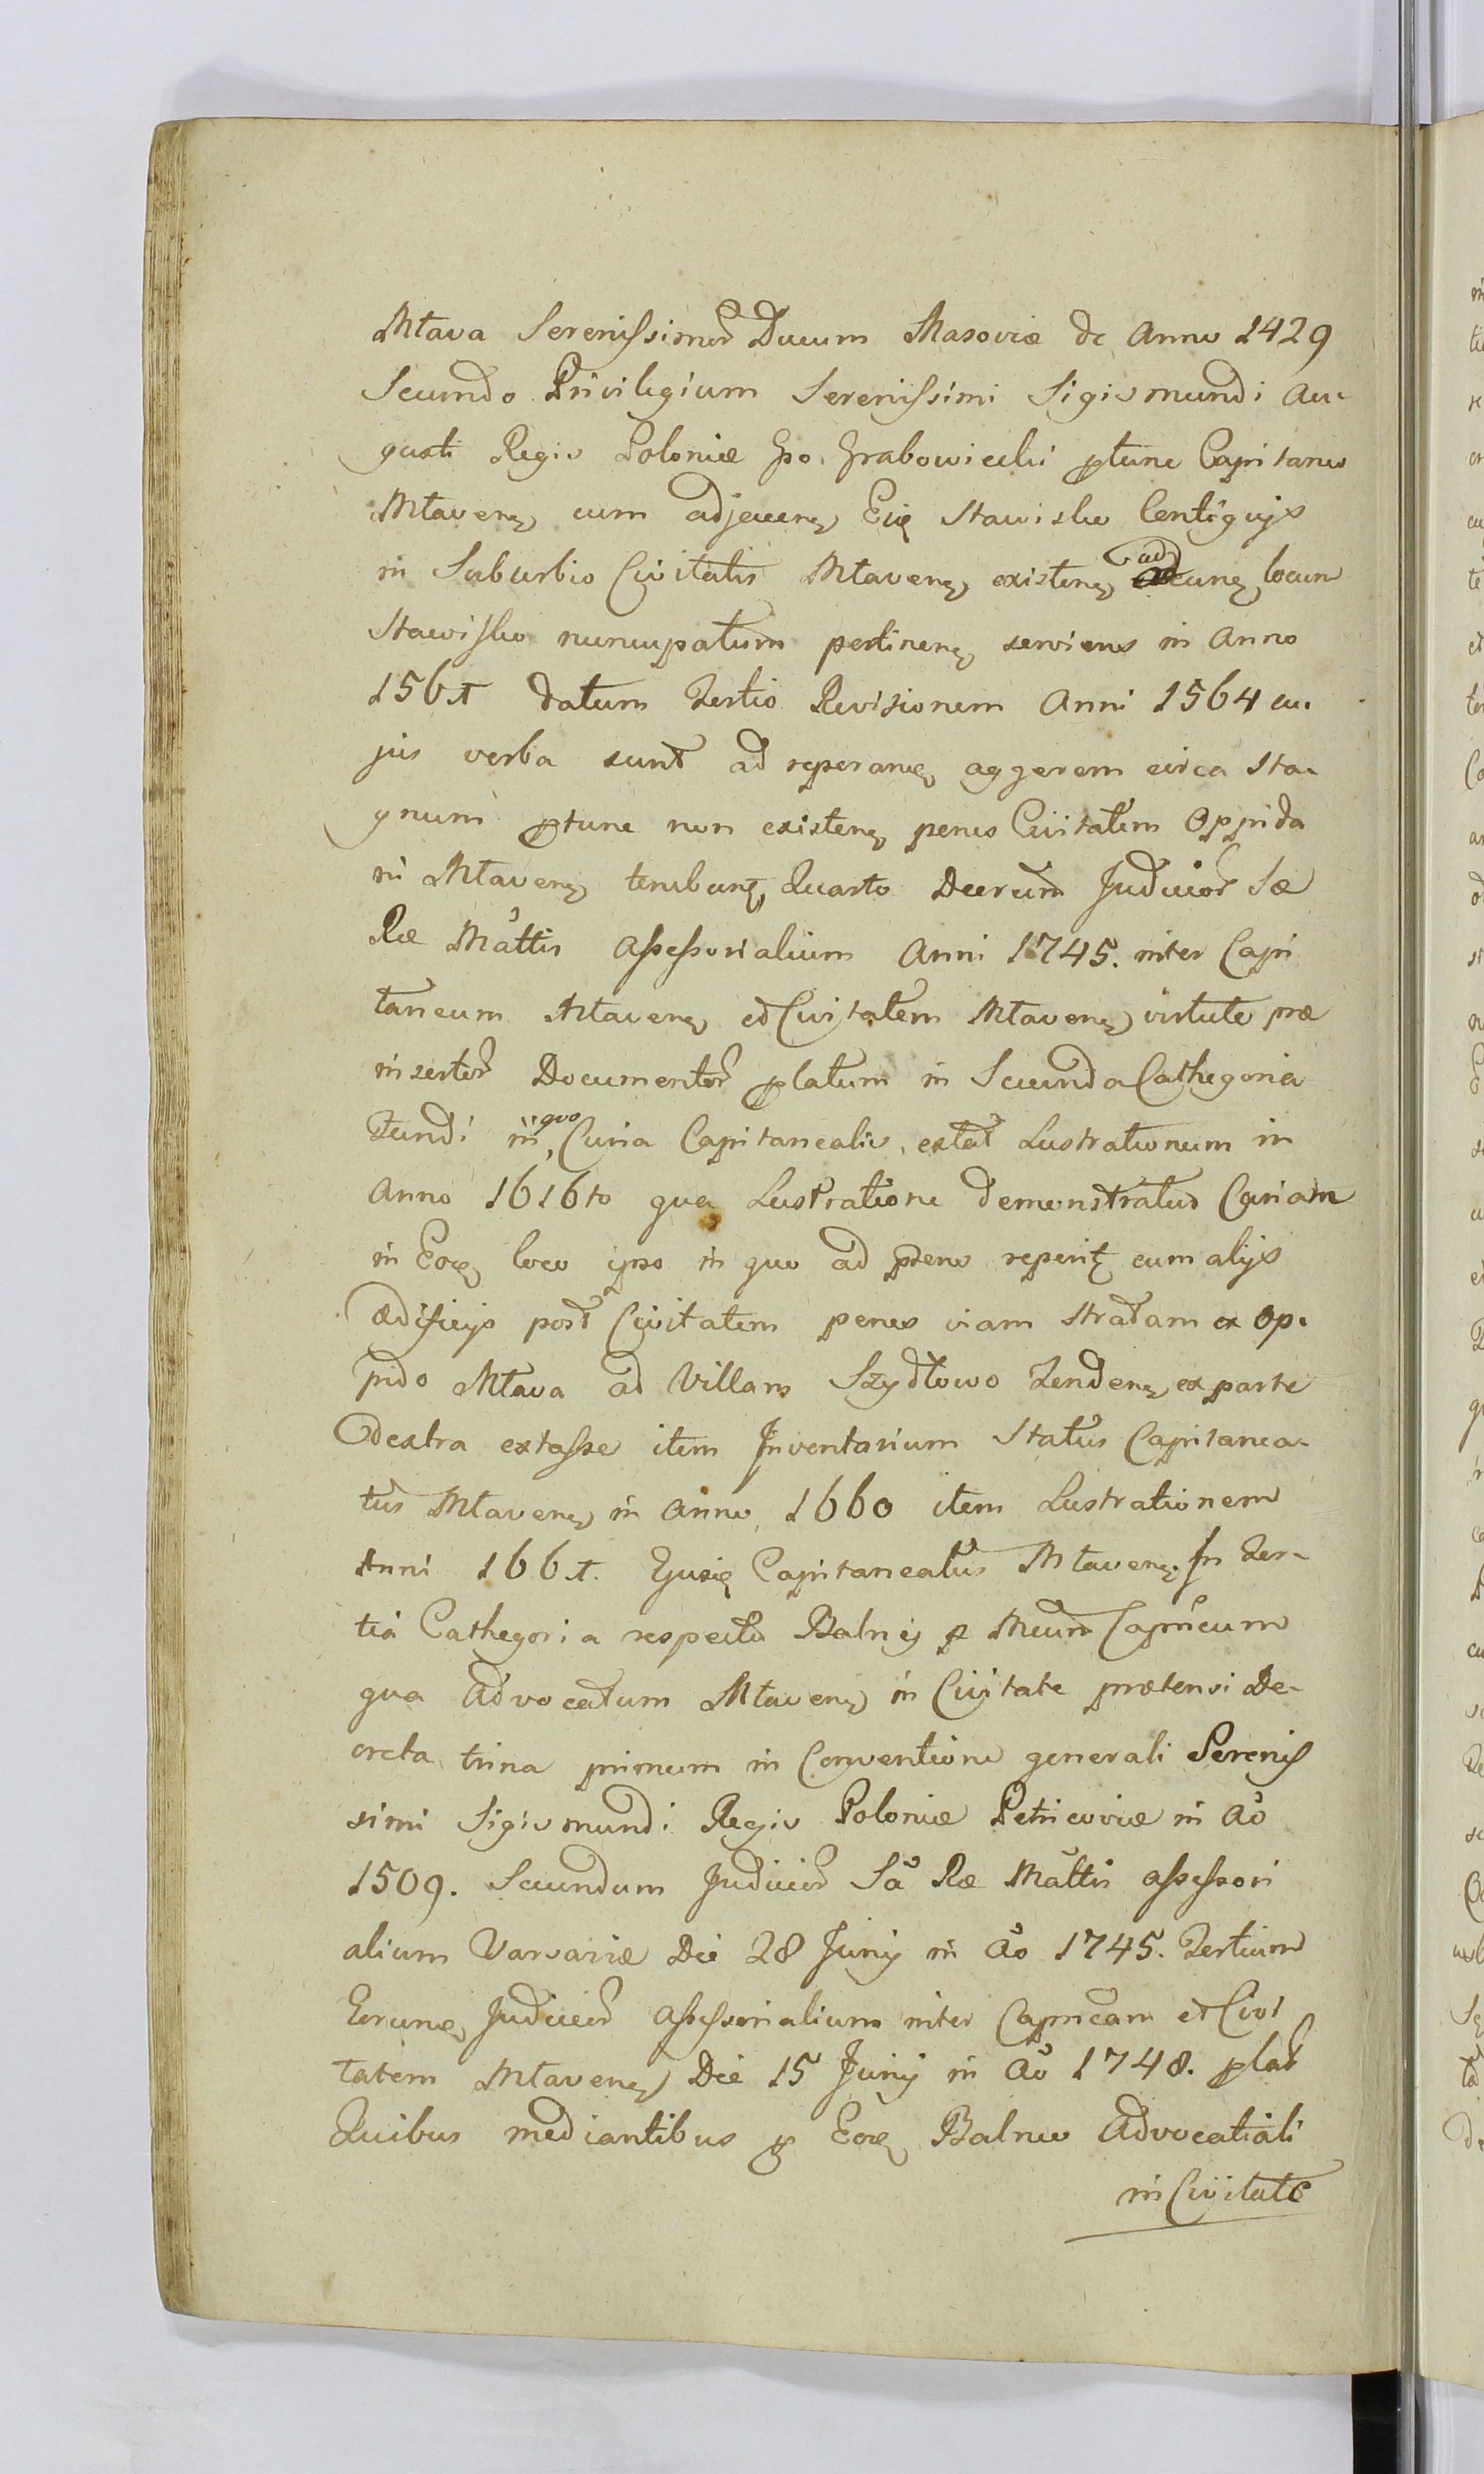 Mława Serenissimor̃ Ducum Masoviæ de Anno 1429
Secundo Privilegium Serenissimi Sigismundi Au-
gusti Regis Poloniæ Gso. Grabowiecki ptunc Capitaneo
Mlaven, cum adjacen, Eiq Stawisko Contiguijs
in Suburbio Civitatis Mlaven, existen, ad eunq, locum
Stawisko nuncupatum pertinen, serviens in Anno
1561 datum Tertio Revisionem Anni 1564 cu-
jus verba sunt ad reperanq, aggerem circa Sta-
gnum ptunc non existen, penes Civitatem Oppida
ni Mlaven, tenebunt, Quarto Decretum Judicior̃ Sæ
Ræ Mattis Assessorialium Anni 1745. inter Capi
taneum Mlaven, et Civitatem Mlaven, virtute præ
insertor̃ Documentor̃ platum in Secunda Cathegoria
Fundi in quo, Curia Capitanealis, extat Lustrationum in
Anno 1616to qua Lustratione demonstratur Curiam
in Eoq, loco ipso in quo ad præns reperit, cum alijs
ædificijs post Civitatem penes viam stratam ex Op-
pido Mława ad Villam Szydłowo Tenden, ex parte
dextra extasse item Inventarium Status Capitanea-
tus Mlaven, in Anno, 1660 item Lustrationem
Anni 1661. Ejusq Capitaneatus Mlaven, In Ter-
tia Cathegoria respectu Balnej p Mcum Capneum
qua Advocatum Mlaven, in Civitate prætensi De-
creta trina primum in Conventione generali Serenis
simi Sigismundi Regis Poloniæ Petricoviæ in Ao
1509. Secundum Judicior̃ Sæ Ræ Mattis Assessori
alium Varsaviæ Die 28 Junij in Ao 1745. Tertium
Eorunq, Judicior̃ Assessorialium inter Capneum et Civi
tatem Mlaven, Die 15 Junij in Ao 1748. plat
Quibus mediantibus p Eoq, Balneo Advocatiali
in Civitate